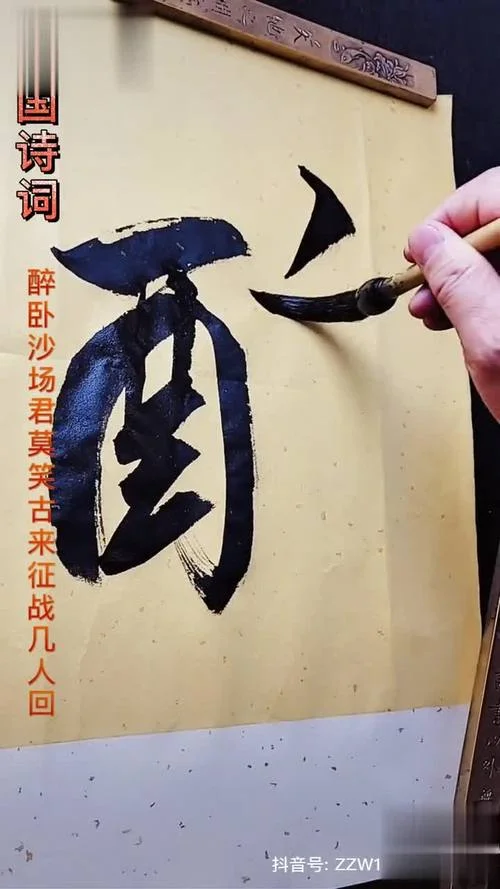 国诗词
醉卧沙场君莫笑古来征战几人回
酉
抖音号: ZZW1